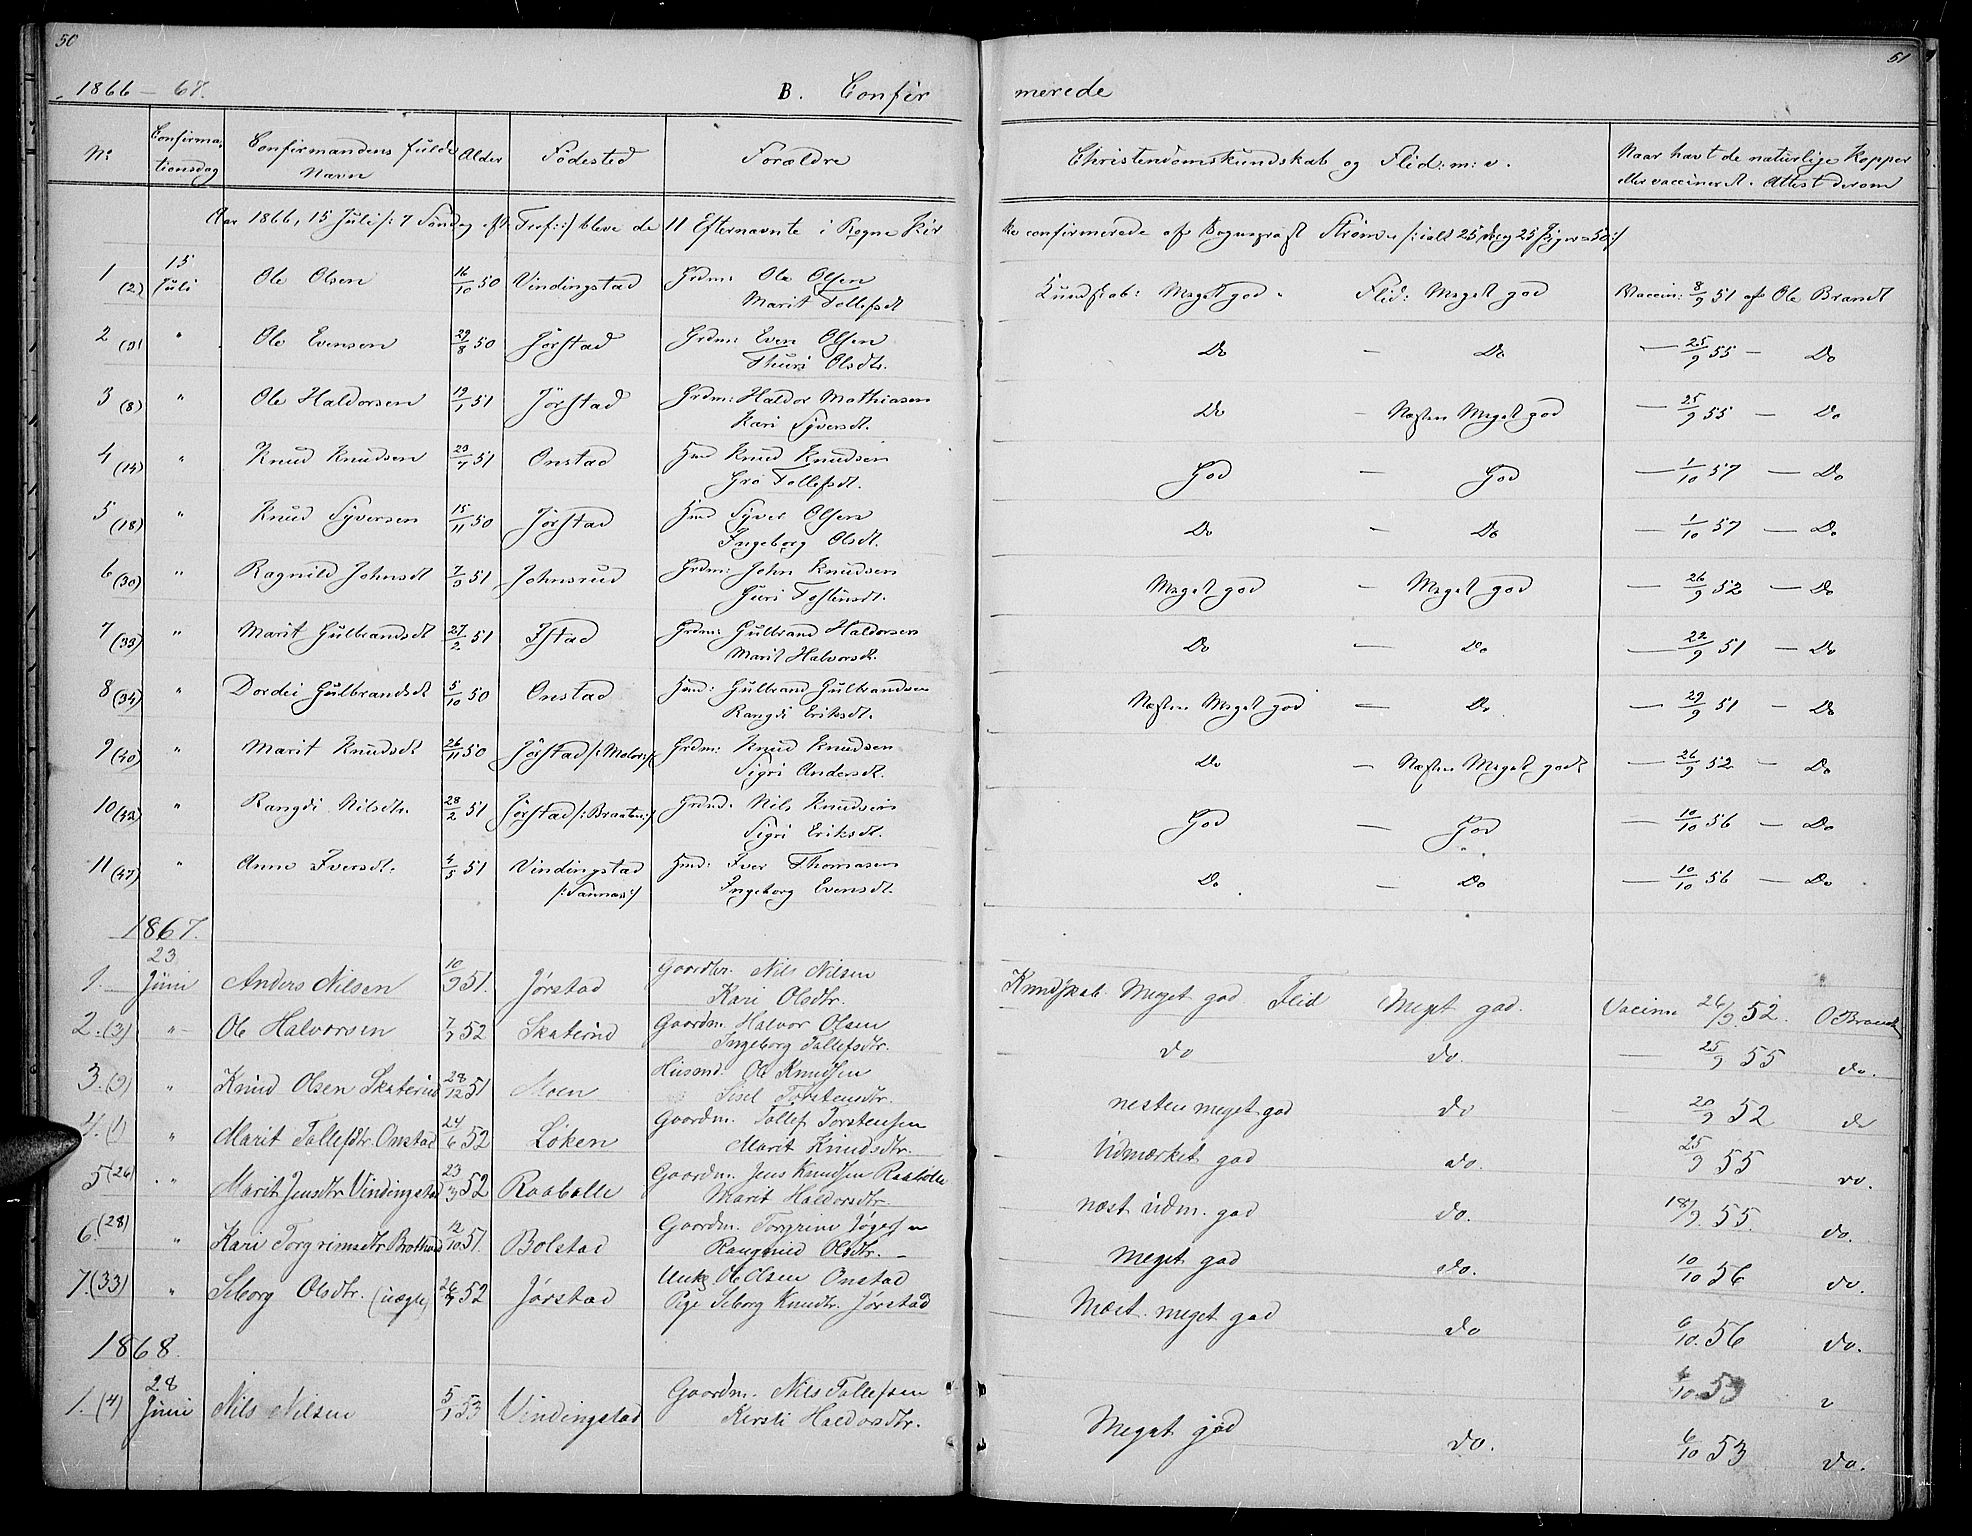 50
51
1866 - 68.
B. Confir
merede
No
Confirma-
tionsdag
Confirmandens fulde
Navn
Alder
Födested
Forældre
Christendomskundskab og Flid: m: v.
Naar havt de naturlige Kopper
eller vaccineret. Attest derom
Aar 1866, 15 Juli /: 7 Söndag eft. Tref: :/ bleve de 11 Efternævnte i Rogne Kir
ke confirmerede af Sognepræst Ström /: ialt 25 Dreng 25 Piger = 50 :/
1 (2) 15 Juli Ole Olsen 16/10 50 Vindingstad Grdm: Ole Olsen
Marit Tollefsdt Kundskab: Meget god. Flid: Meget god Vaccin: 8/9 51 af Ole Brandt
2 " Ole Evensen 29/8 50 Jörstad Grdm: Even Olsen
Thuri Olsdtr. Do — Do — 25/9 55 — Do
3 (8) " Ole Haldorsen 19/1 51 Jörstad Grdm: Haldor Mathiasen
Kari Syversdt. Do — Næsten Meget god — 25/9 55 — Do
4 (14) " Knud Knudsen 23/7 51 Onstad Hmd Knud Knudsen
Gro Tollefsdt. God — God — 1/10 57 — Do
5 (18) " Knud Syversen 15/11 50 Jörstad Hmd Syver Olsen
Ingeborg Olsdt. Do — Do — 1/10 57 — Do
6 (30) " Ragnild Johnsdt 51 Johnsrud Grdm: John Knudsen
Guri Tostensdt. Meget god — Meget god — 26/9 52 — Do
7 (33) " Marit Gulbrandsdt 27/2 51 Istad Grdm: Gulbrand Haldorsen
Marit Halvorsdt. Do — Do — 22/9 51 — Do
8 (34) " Dordei Gulbrandsdt 5/10 50 Onstad Hmd: Gulbrand Gulbrandsen
Rangdi Eriksdt. Næsten Meget god — Do — 29/9 51 — Do
9 (40) " Marit Knudsdt 26/11 50 Jörstad /: Molor :/ Grdm: Knud Knudsen
Sigri Andersdt. Do — Næsten Meget godt — 26/9 52 — Do
10 " Rangdi Nilsdtr. 28/2 51 Jörstad /: Braaten :/ Grdmd: Nils Knudsen
Sigri Eriksdt. God — God — 10/10 56 — Do
11 (47) " Anne Iversdt. 4/5 51 Vindingstad
/: Sannas :/ Hmd: Iver Thomasen
Ingeborg Evensdt. Do — Do — 10/10 56 — Do
1867.
1. 23 Juni Anders Nilsen 10/9 51. Jørstad Gaardbr. Nils Nilsen
Kari Olsdtr. Kundskab. Meget god Flid Meget god. Vacinn 26/9 52. O Brandt
2. (3) " Ole Halvorsen 52 Skaterud Gaardm. Halvor Olsen
Ingeborg Tollefsdtr. do do. — 25/9 55 do.
3. (9) " Knud Olsen Skaterud 28/12 51 Moen Husmd. Ole Knudsen
Sisel Torstensdtr. nesten meget god do — 20/9 52 do
4. (1) " Marit Tollefsdtr. Onstad 24/6 52 Løken Gaardm. Tollef Torstensen
Marit Knudsdtr. Udmærket god do. 25/9 55 do.
5 (26) " Marit Jensdtr Vindingstad 23/3 52 Raabølle Gaardm. Jens Knudsen Raabølle
Marit Haldorsdtr. næst udm. god do. 18/9. 55. do.
6. (28) " Kari Torgrimsdtr 12/10 51. Bolstad Gaardm. Torgrim
Rangnild Olsdtr. — Meget god do. 10/10 56 do.
7. (33) " Seborg Olsdtr. (uægte) 26/9 52 Jørstad Unke Ole Olsen Onstad
Pige Seborg Knudtr. Jørstad Næst. meget god do 6/10. 56 do.
1868.
6/10. 53
1. (4) 28 Juni Nils Nilsen 5/1 53 Vindingstad Gaardm. Nils Tollefsen
Kersti Haldorsdtr. Meget god do. 6/10 53 do.